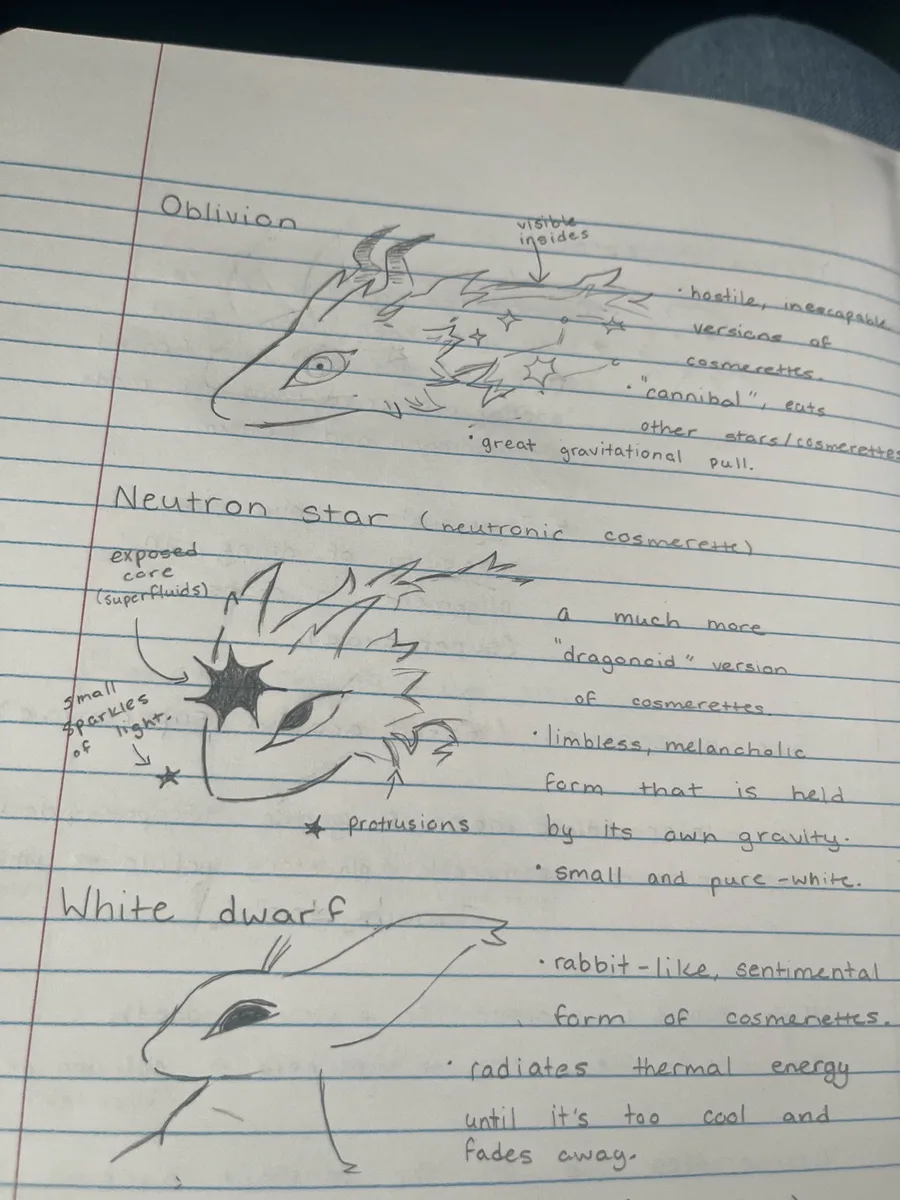 Oblivion
visible
insides
• hostile, inescapable
versions of
cosmerettes.
• "cannibal", eats
other stars/cosmerettes
• great gravitational pull.
Neutron star (neutronic cosmerette)
exposed
core
(superfluids)
small
sparkles
of light.
protrusions
a much more
"dragonoid" version
of cosmerettes.
• limbless, melancholic
form that is held
by its own gravity.
• small and pure-white.
White dwarf
• rabbit-like, sentimental
form of cosmerettes.
• radiates thermal energy
until it's too cool and
fades away.